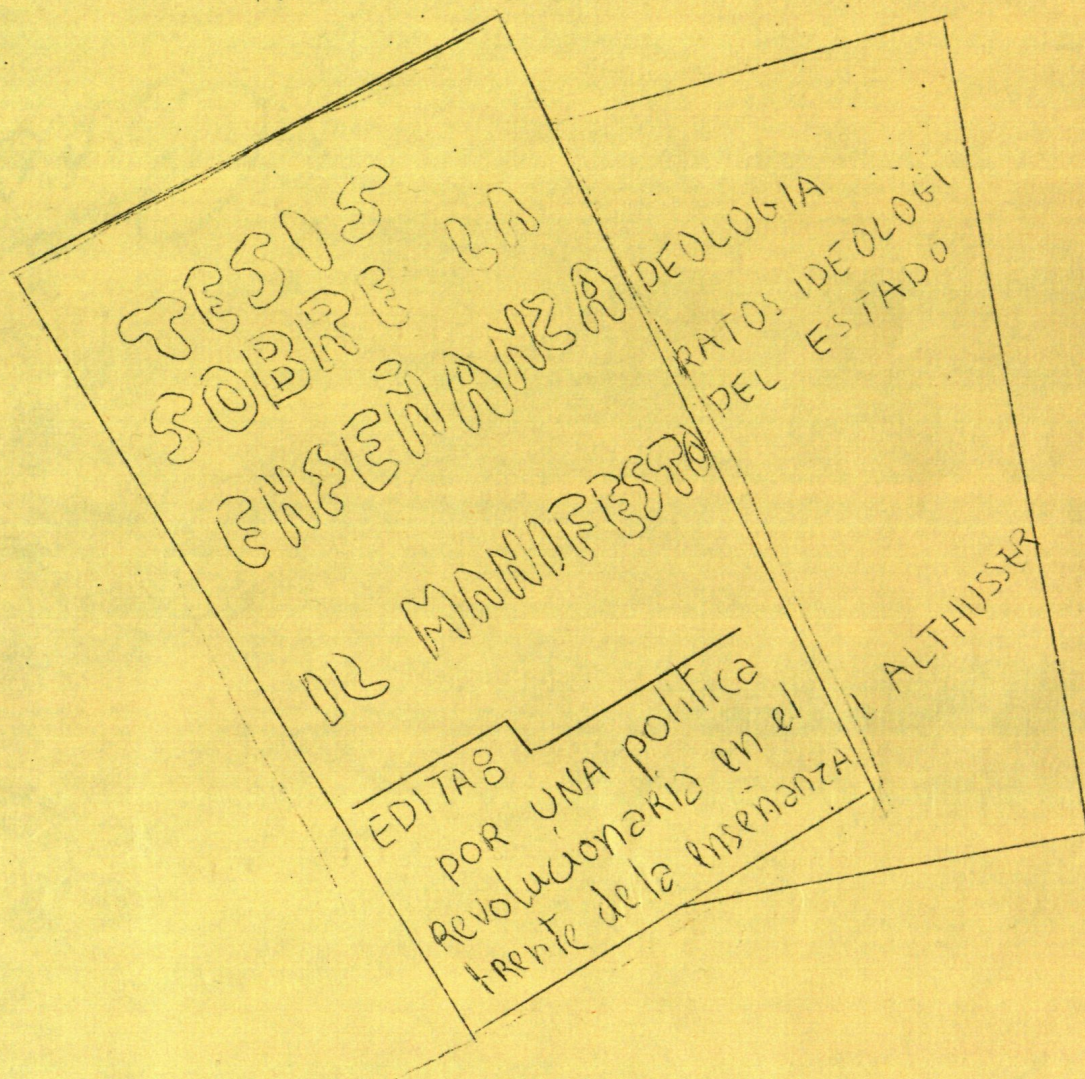 TESIS
SOBRE LA
ENSEÑANZA
IL MANIFESTO
EDITA:
POR UNA política
Revolucionaria en el
frente de la enseñanza
DEOLOGIA
RATOS IDEOLOGI
DEL ESTADO
L ALTHUSSER